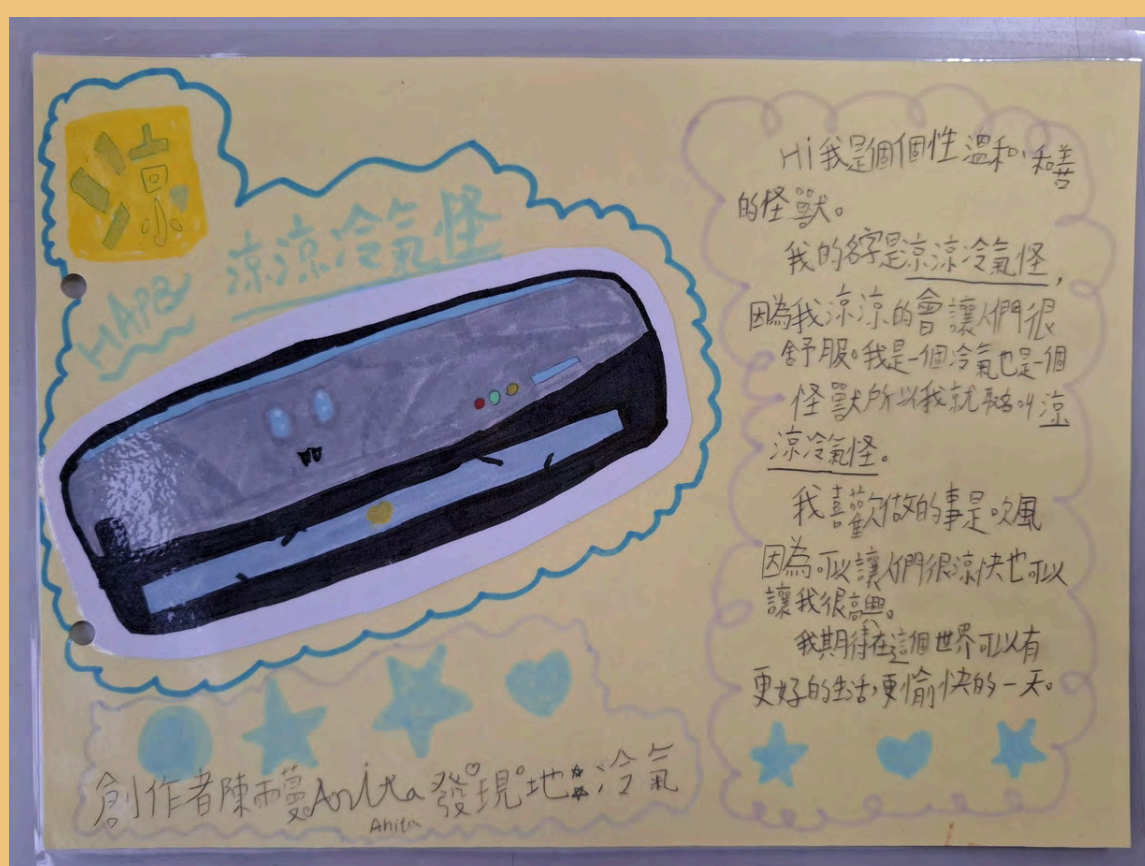 涼
涼涼冷氣怪
HAPBY
Hi我是個個性溫和、和善
的怪獸。
我的名字是涼涼冷氣怪,
因為我涼涼的會讓人們很
舒服。我是一個冷氣也是一個
怪獸所以我就取名叫涼
涼冷氣怪。
我喜歡做的事是吹風
因為可以讓人們很涼快也可以
讓我很高興。
我期待在這個世界可以有
更好的生活,更愉快的一天。
創作者陳雨蔓Anita發現地:冷氣
Anita